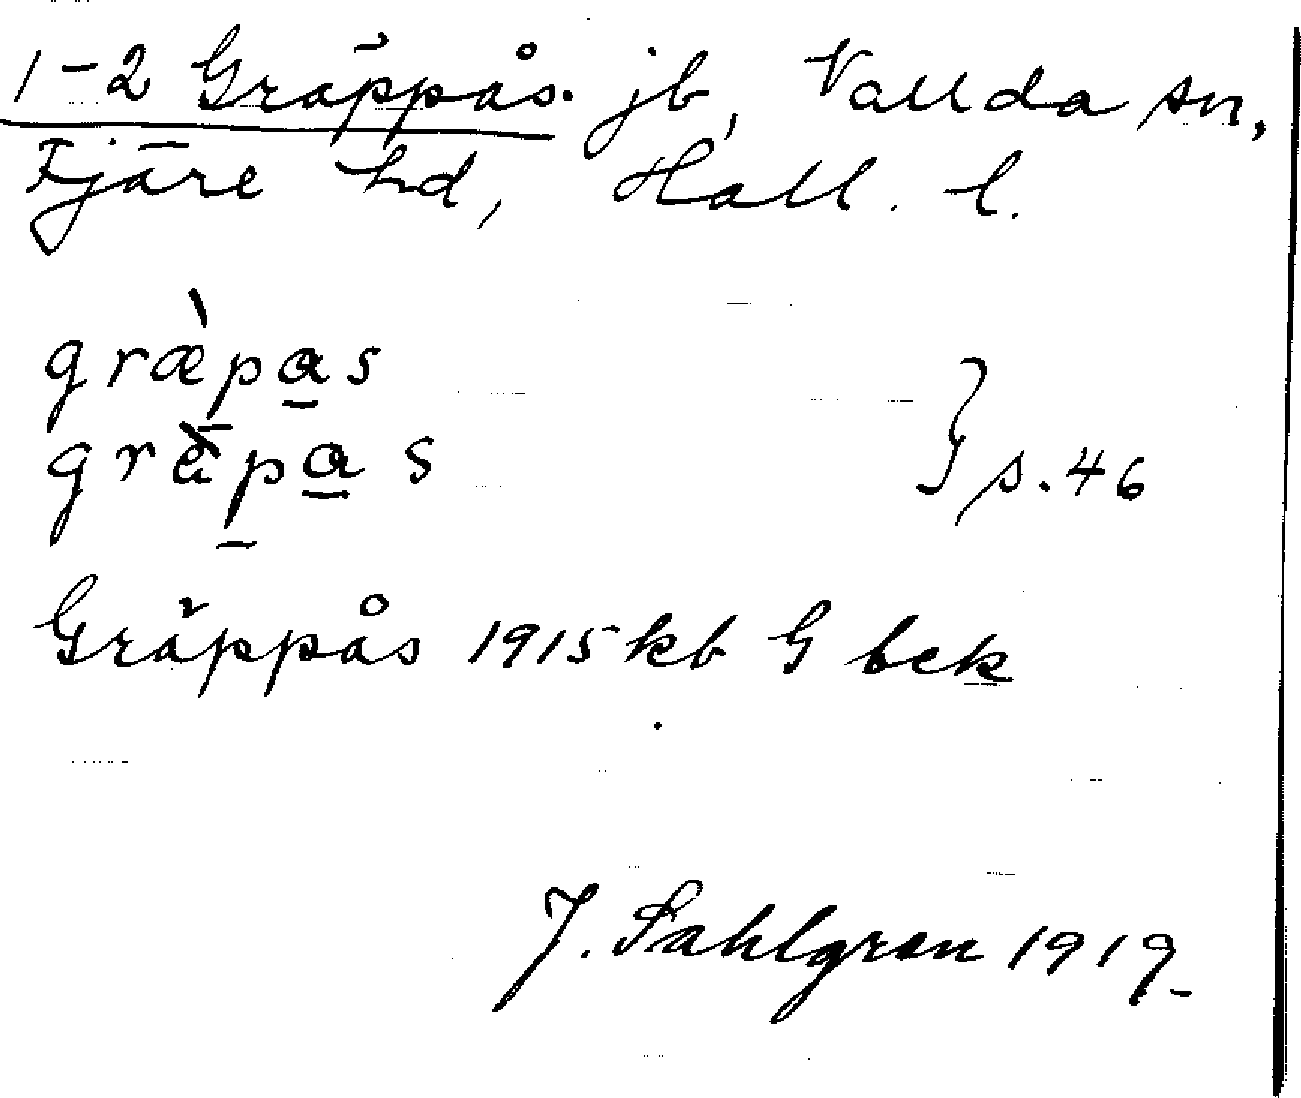 1-2 Gräppås. jb, Vallda sn,
Fjäre hd, Hall. l.
græ̀p̱a̱s
grὰp̱a̱s } s. 46
Gräppås 1915 kb G bek
J. Sahlgren 1919